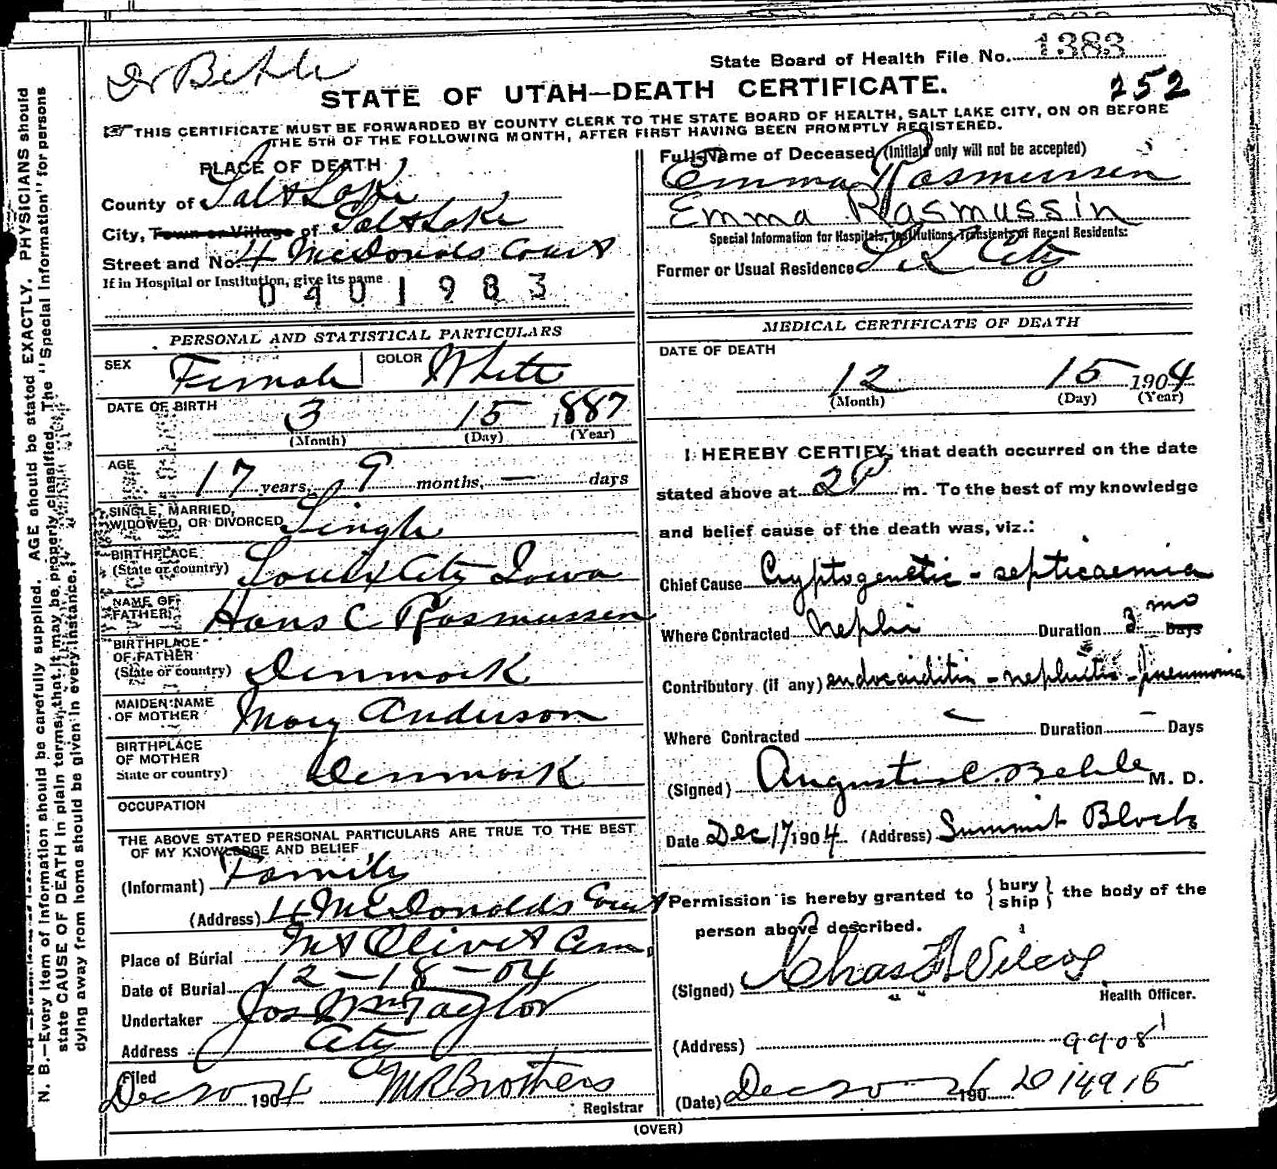 Dr Behle
State Board of Health File No. 1383
252
STATE OF UTAH—DEATH CERTIFICATE.
THIS CERTIFICATE MUST BE FORWARDED BY COUNTY CLERK TO THE STATE BOARD OF HEALTH, SALT LAKE CITY, ON OR BEFORE
THE 5TH OF THE FOLLOWING MONTH, AFTER FIRST HAVING BEEN PROMPTLY REGISTERED.
PLACE OF DEATH
County of Salt Lake
City, Town or Village of Salt Lake
Street and No. 4 McDonalds Court
If in Hospital or Institution, give its name
0401983
PERSONAL AND STATISTICAL PARTICULARS
SEX Female COLOR White
DATE OF BIRTH 3 15 1887
(Month) (Day) (Year)
AGE 17 years, 9 months, — days
SINGLE, MARRIED,
WIDOWED, OR DIVORCED Single
BIRTHPLACE
(State or country) Souix City Iowa
NAME OF
FATHER Hans C Rasmussen
BIRTHPLACE
OF FATHER
(State or country) Denmark
MAIDEN NAME
OF MOTHER Mary Anderson
BIRTHPLACE
OF MOTHER
State or country) Denmark
OCCUPATION
THE ABOVE STATED PERSONAL PARTICULARS ARE TRUE TO THE BEST
OF MY KNOWLEDGE AND BELIEF
(Informant) Family
(Address) 4 McDonalds Court
Place of Burial Mt Olivet Cem,
Date of Burial 12-18-04
Undertaker Jos Wm Taylor
Address City
Filed
Dec 20 1904 M R Brothers
Registrar
Full Name of Deceased (Initials only will not be accepted)
Emma Rasmussen
Emma Rasmussin
Special Information for Hospitals, Institutions, Transients or Recent Residents:
Former or Usual Residence S L City
MEDICAL CERTIFICATE OF DEATH
DATE OF DEATH
12 15 1904
(Month) (Day) (Year)
I HEREBY CERTIFY, that death occurred on the date
stated above at 2 P m. To the best of my knowledge
and belief cause of the death was, viz.:
Chief Cause Cryptogenetic - septicaemia
Where Contracted Nephi Duration 3 mo Days
Contributory (if any) endocarditis - nephritis - pneumonia
Where Contracted Duration — Days
(Signed) Augustus C. Behle M. D.
Date Dec 17 1904 (Address) Summit Block
Permission is hereby granted to {bury
ship} the body of the
person above described.
(Signed) Chas F Wilcox
Health Officer.
(Address) 9908
(Date) Dec 20 1904 2014915
(OVER)
N. B.—Every item of information should be carefully supplied. AGE should be stated EXACTLY. PHYSICIANS should
state CAUSE OF DEATH in plain terms, that it may be properly classified. The "Special Information" for persons
dying away from home should be given in every instance.